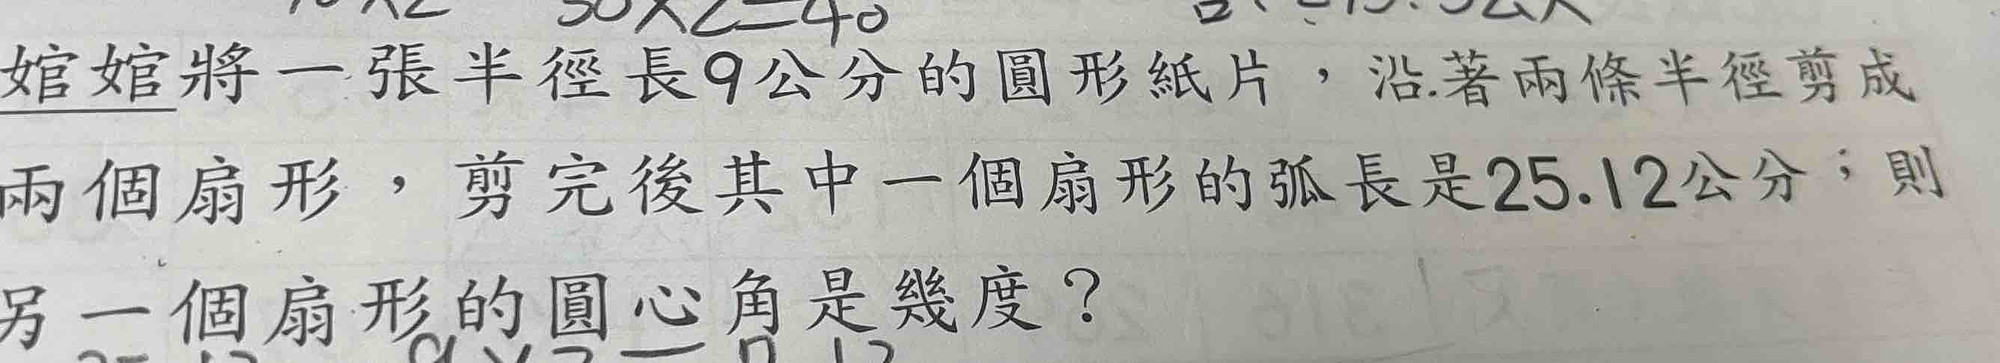 50×2=40
婠婠將一張半徑長9公分的圓形紙片，沿著兩條半徑剪成
兩個扇形，剪完後其中一個扇形的弧長是25.12公分；則
另一個扇形的圓心角是幾度？